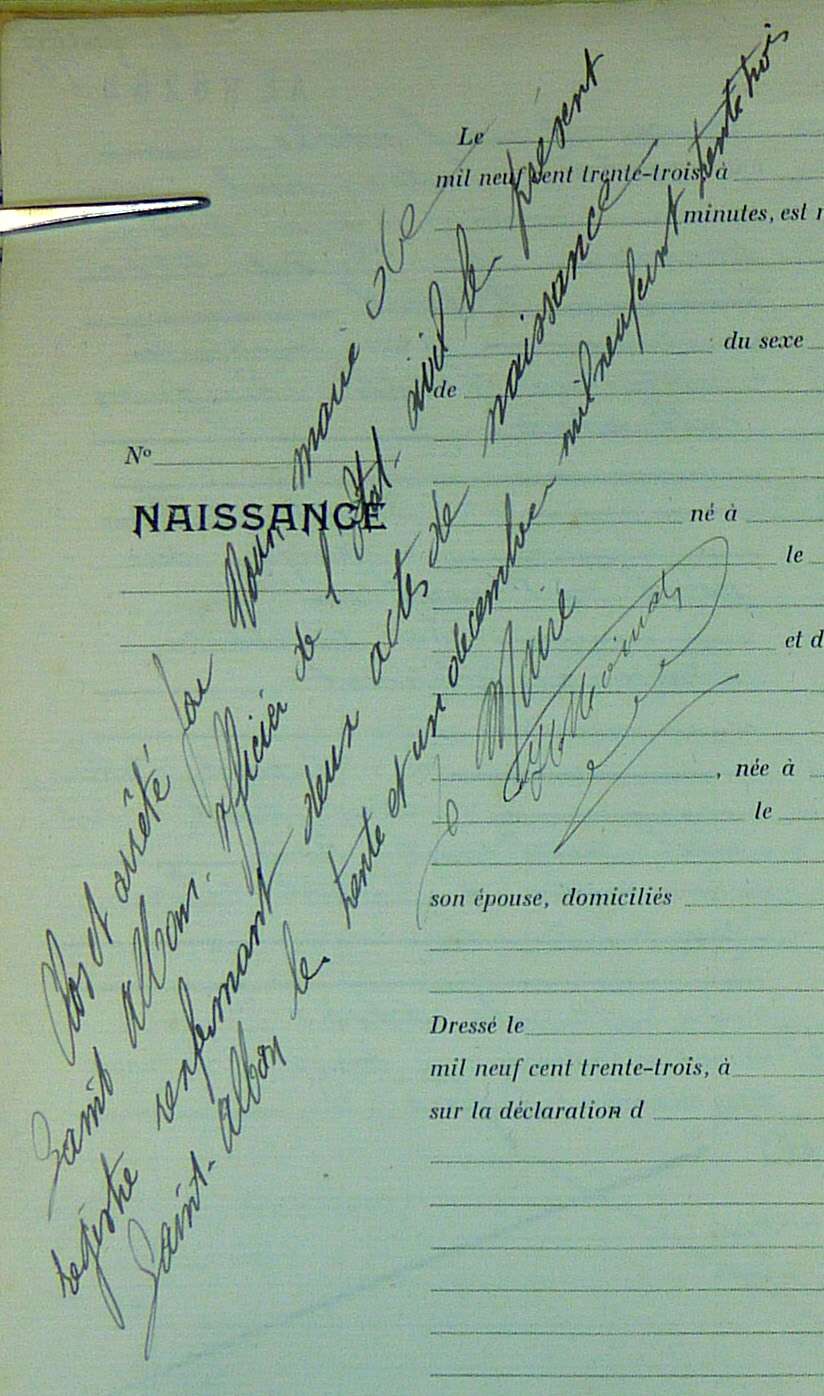 Clos et arrêté par Nous maire de
Saint Albon. officier de l'Etat-civil le présent
registre renfermant deux actes de naissance
Saint-Albon le trente et un decembre mil neuf cent trente trois
le Maire
Le
mil neuf cent trente-trois, à
minutes, est
du sexe
de
Nº
NAISSANCE
né à
le
et d
, née à
le
son épouse, domiciliés
Dressé le
mil neuf cent trente-trois, à
sur la déclaration d